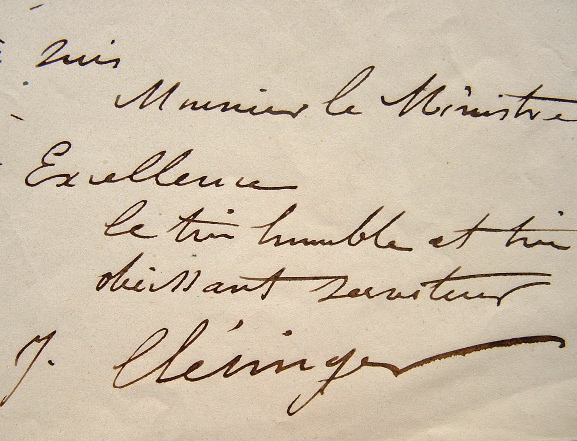 suis
Monsieur le Ministre
Excellence
le très humble et très
obéissant serviteur
J. Clésinger